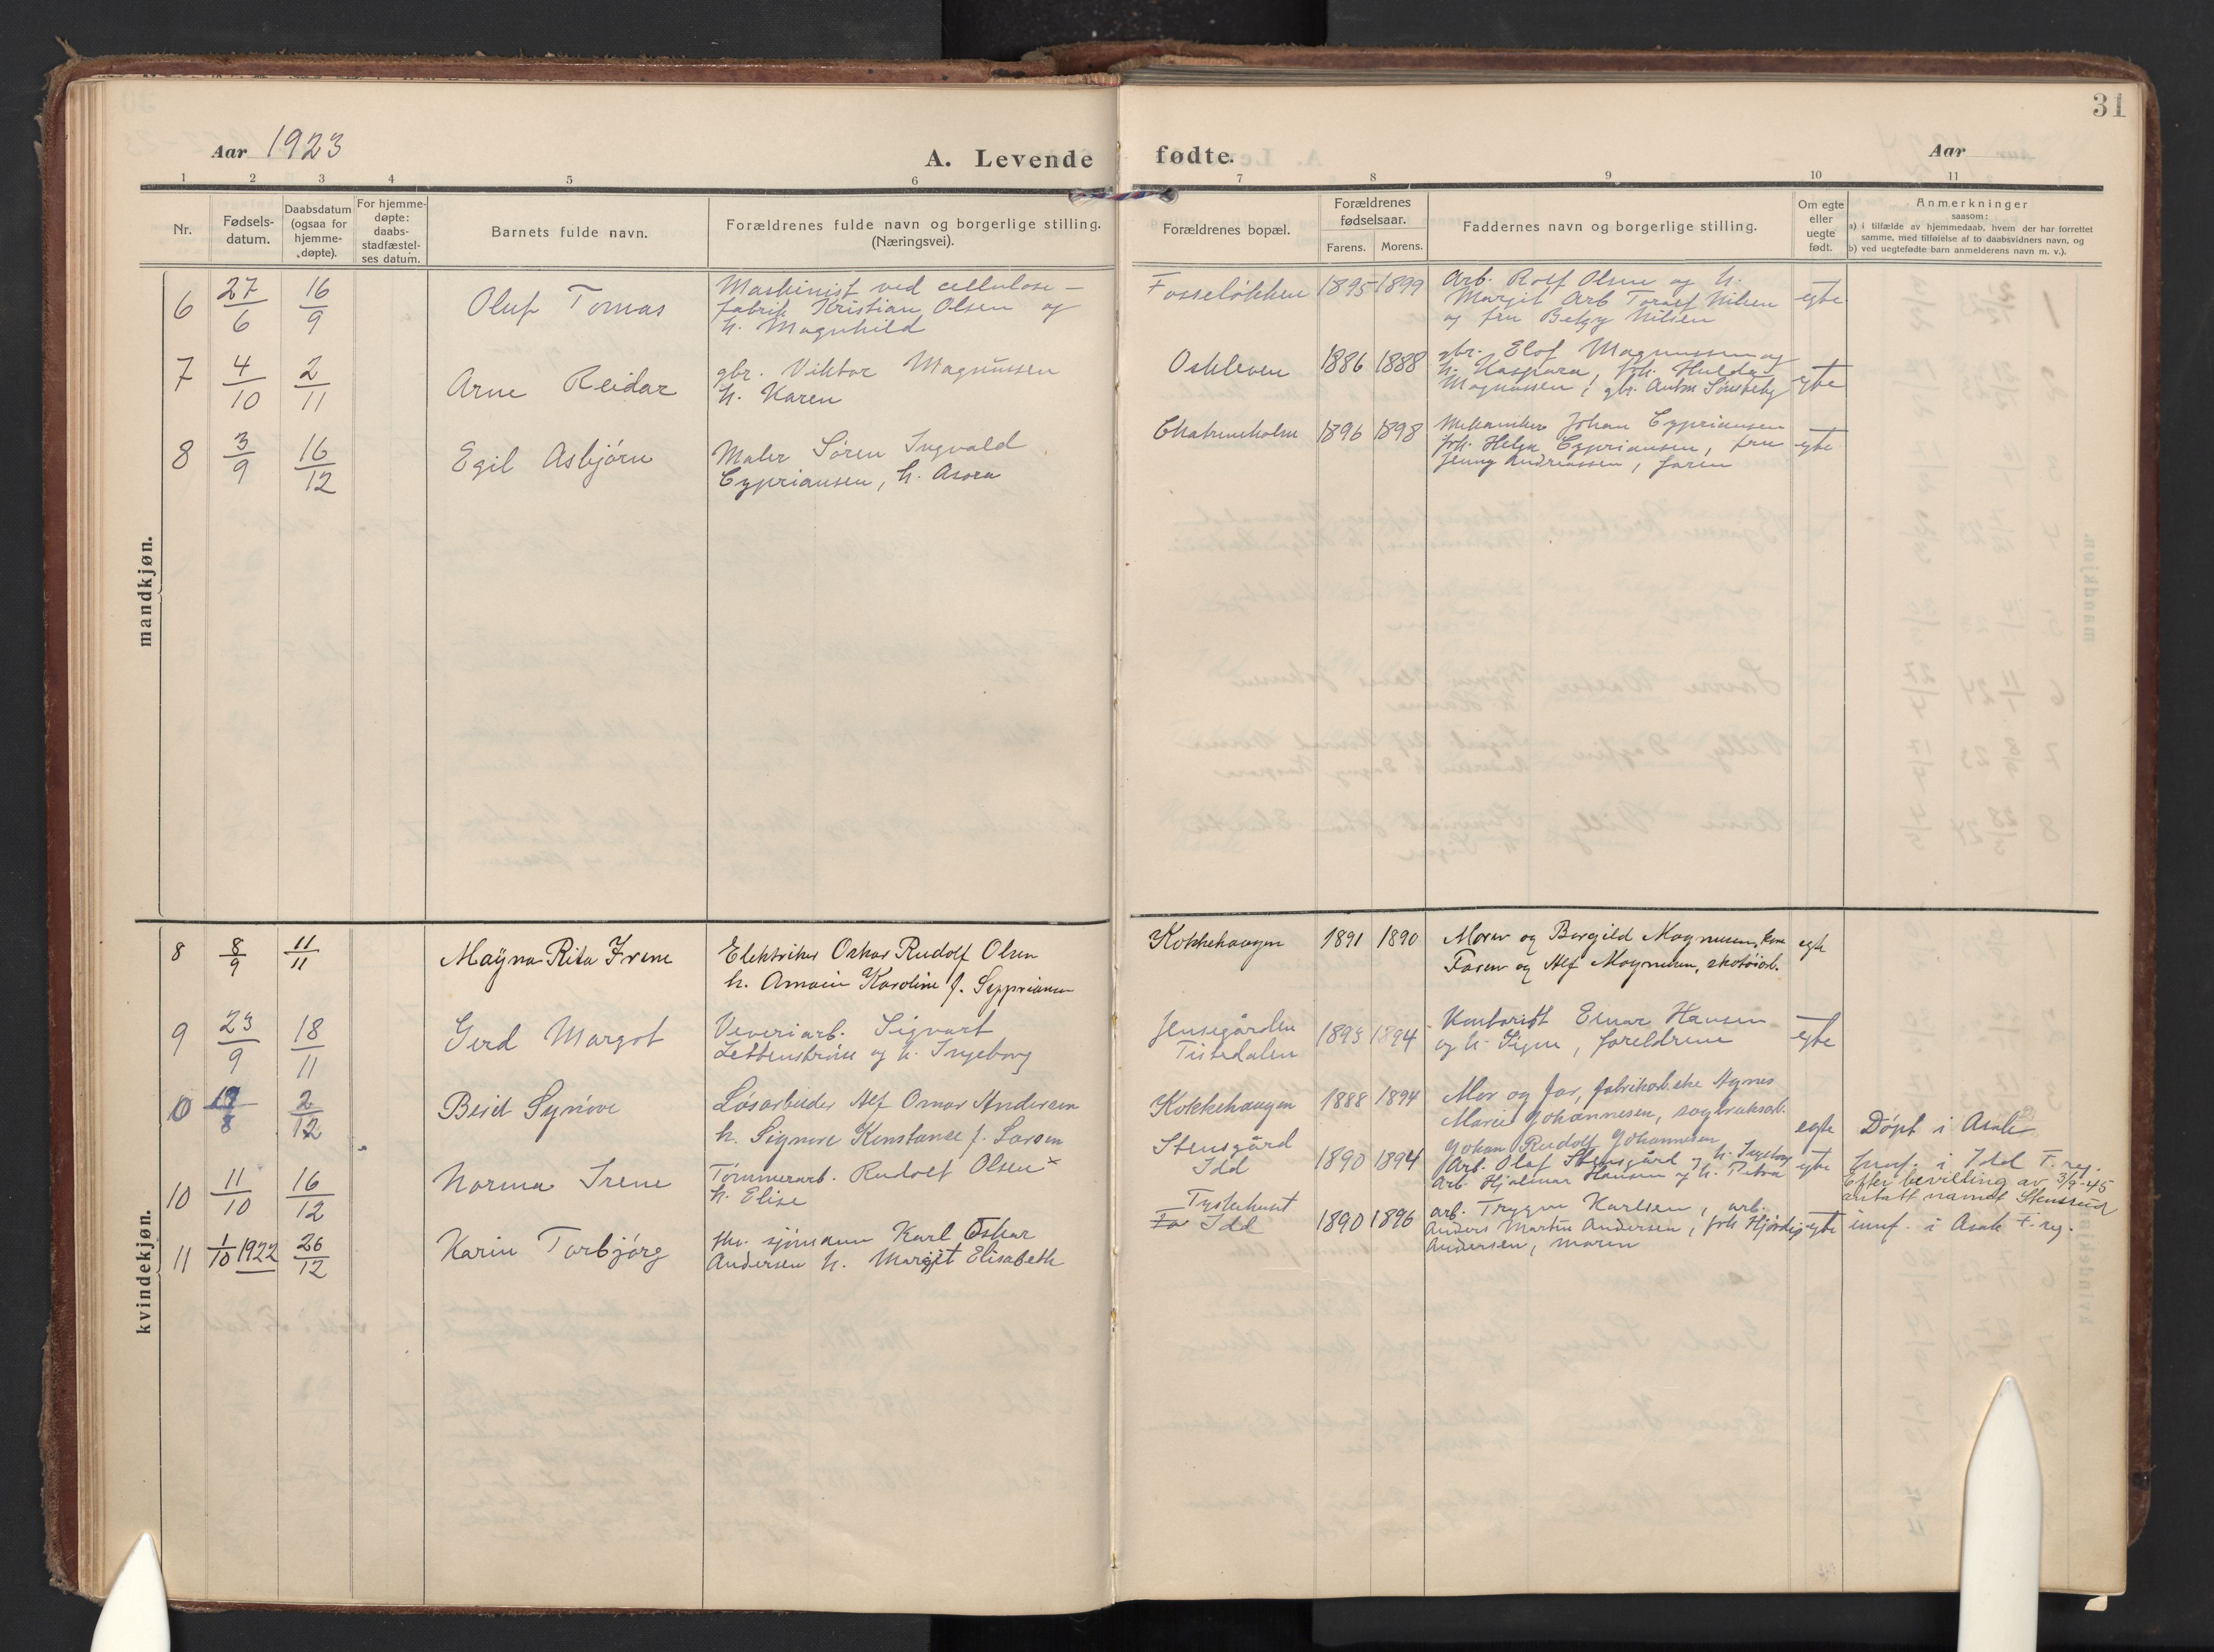 31
Aar 1923
A. Levende fødte.
Aar
1 2 3 4 5 6 7 8 9 10 11
Nr.
Fødsels-
datum.
Daabsdatum
(ogsaa for
hjemme-
døpte).
For hjemme-
døpte:
daabs-
stadfæstel-
ses datum.
Barnets fulde navn.
Forældrenes fulde navn og borgerlige stilling.
(Næringsvei).
Forældrenes bopæl.
Forældrenes
fødselsaar.
Farens. Morens.
Faddernes navn og borgerlige stilling.
Om egte
eller
uegte
født.
Anmerkninger
saasom:
a) i tilfælde av hjemmedaab, hvem der har forrettet
samme, med tilføielse af to daabsvidners navn, og
b) ved uegtefødte barn anmelderens navn m. v.).
mandkjøn.
6 27/6 16/9 Oluf Tomas
Maskinist ved cellulose-
fabrik Kristian Olsen og
h. Magnhild
Fosseløkken 1895 1899
Arb. Rolf Olsen og h.
Margit Arb Toralf Nilsen
og fru Betzy Nilsen
egte
7 4/10 2/11 Arne Reidar
gbr. Viktor Magnussen
h. Karen
Oskleven 1886 1888
gbr. Elof Magnussen og
h. Kaspara, frk. Hulda
Magnussen, gbr. Anton Sønsteby
egte
8 3/9 16/12 Egil Asbjørn
Maler Søren Ingvald
Cypriansen, h. Asora
Chatrineholm 1896 1898
Mekaniker Johan Cypriansen
frk. Helga Cypriansen, fru
Jenny Andreassen, faren
egte
kvindekjøn.
8 8/9 11/11 Mayna Rita Irene
Elektriker Oskar Rudolf Olsen
h. Amain Karoline f. Syppriansen
Kokkehaugen 1891 1890
Moren og Borgild Magnussen, kone
Faren og Alf Magnussen, skotøiarb.
egte
9 23/9 18/11 Gerd Margot
Veveriarb. Sigvart
Zettenstrøm og h. Ingeborg
Jensegården
Tistedalen
1893 1894
Kontorist Einar Hansen
og h. Signe, foreldrene
egte
10 2/12 Berit Synøve
Løsarbeider Alf Omar Andersen
h. Signore Konstanse f. Larsen
Kokkehaugen 1888 1894
Mor og far, fabrikarb.ske Agnes
Marie Johannesen, sagbruksarb.
Johan Rudolf Johannesen
egte Døpt i Asak
10 11/10 16/12 Norma Irene
Tømmerarb. Rudolf Olsen x
h. Elise
Stensgård
Idd
1890 1894
Arb. Olaf Stensgård og h. Ingeborg
Arb. Hjalmar Hansen og h. Petra
egte
Innf. i Idd F. reg.
Efter bevilling av 3/9-45
antatt namet Stensrud
11 1/10 1922 26/12 Karin Torbjørg
fhv. sjømann Karl Oskar
Andersen h. Margit Elisabeth
Tyskehuset
Idd
1890 1896
arb. Trygve Karlsen, arb.
Anders Martin Andersen, frk Hjørdis
Andersen, moren
egte innf. i Asak F. reg.